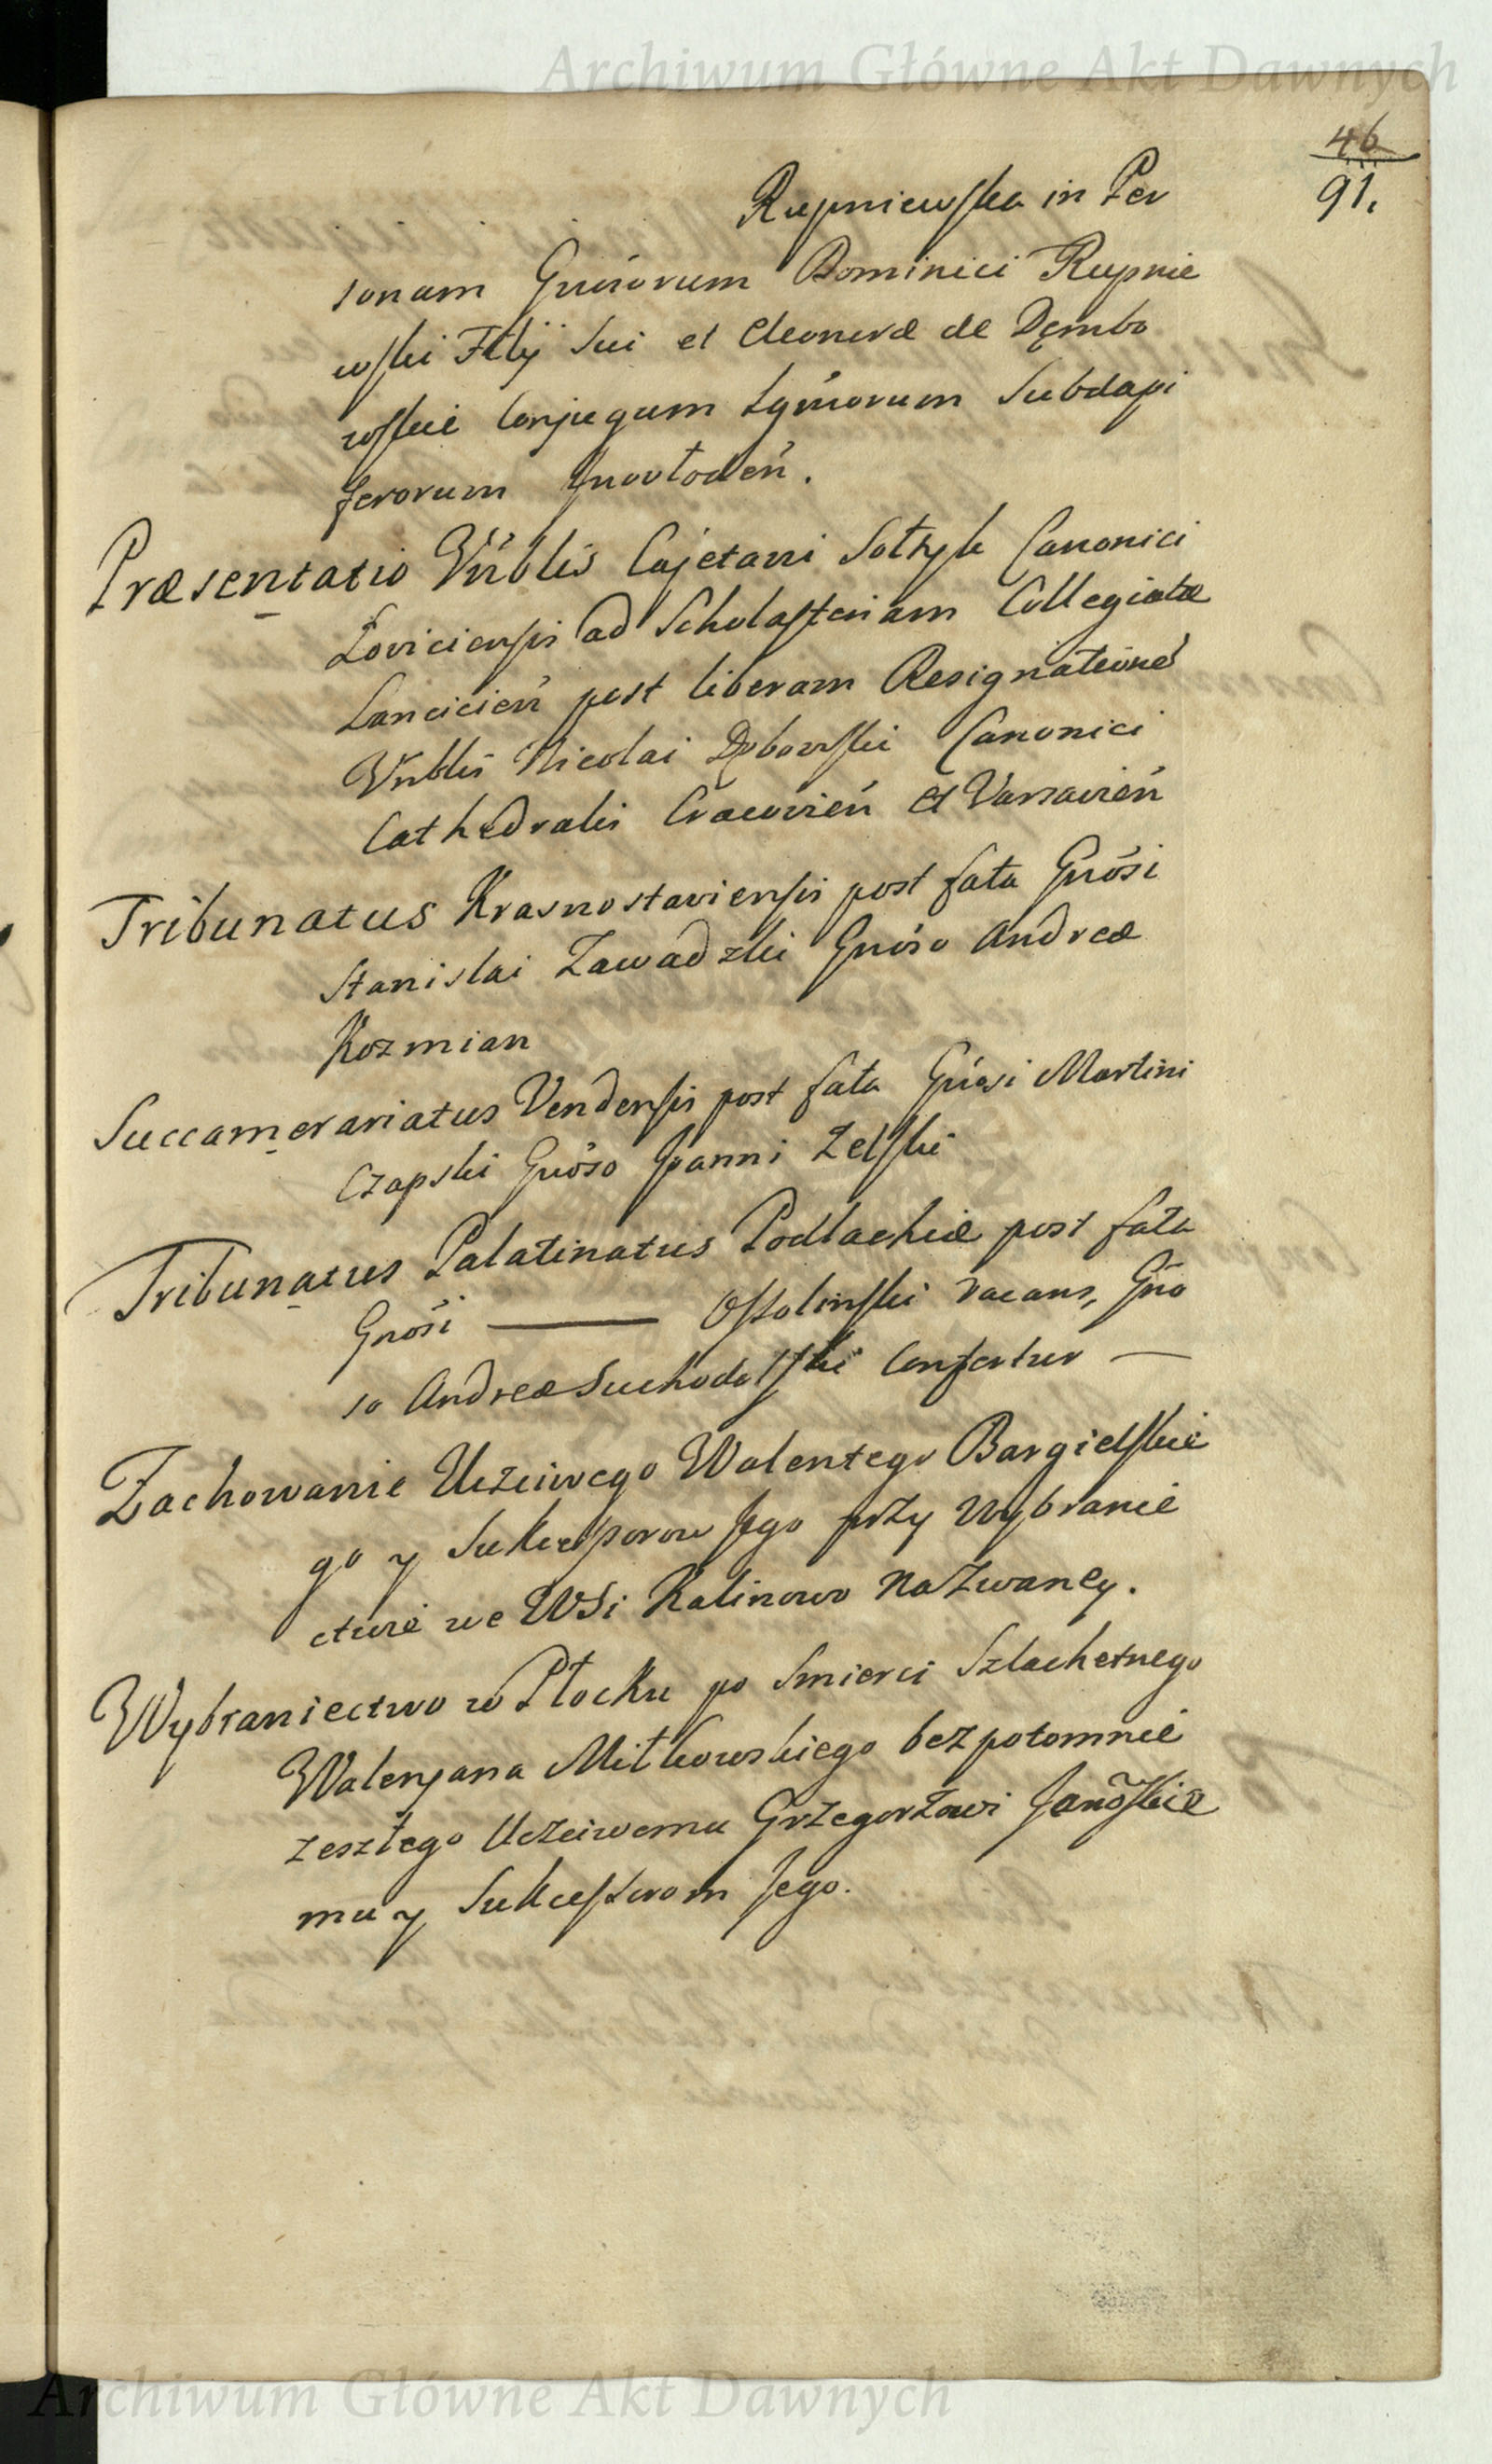 Archiwum Główne Akt Dawnych
46
91.
Rupniewska in Per
sonam Gnosorum Dominici Rupnie
wski Filij Sui et Eleonoræ de Dęmbo
wskie Conjugum Lgmorum Subdapi
ferorum Inovłodeń.
Præsentatio Vnblis Cajetani Sołtyk Canonici
Loviciensis ad Scholasteriam Collegiatæ
Lancicień post liberam Resignationē
Vnblis Nicolai Dębowski Canonici
Cathedralis Cracovień et Varsavień
Tribunatus Krasnostaviensis post fata Gnosi
Stanislai Zawadzki Gnoso Andreæ
Kozmian
Succamerariatus Vendensis post fata Gnosi Martini
Czapski Gnoso Joanni Zelski
Tribunatus Palatinatus Podlachiæ post fata
Gnosi ——— Ossolinski vacans, Gno
so Andreæ Suchodolski Confertur —
Zachowanie Uczciwego Walentego Bargielskie
go y Sukcessorow Jego przy Wybranie
ctwie we WSi Kalinowo naZwaney.
Wybraniectwo w Płocku po Smierci Szlachetnego
Waleryana Miłkowskiego bezpotomnie
zeszłego Uczciwemu Grzegorzowi Janoskie
mu y Sukcessorom Jego.
Archiwum Główne Akt Dawnych